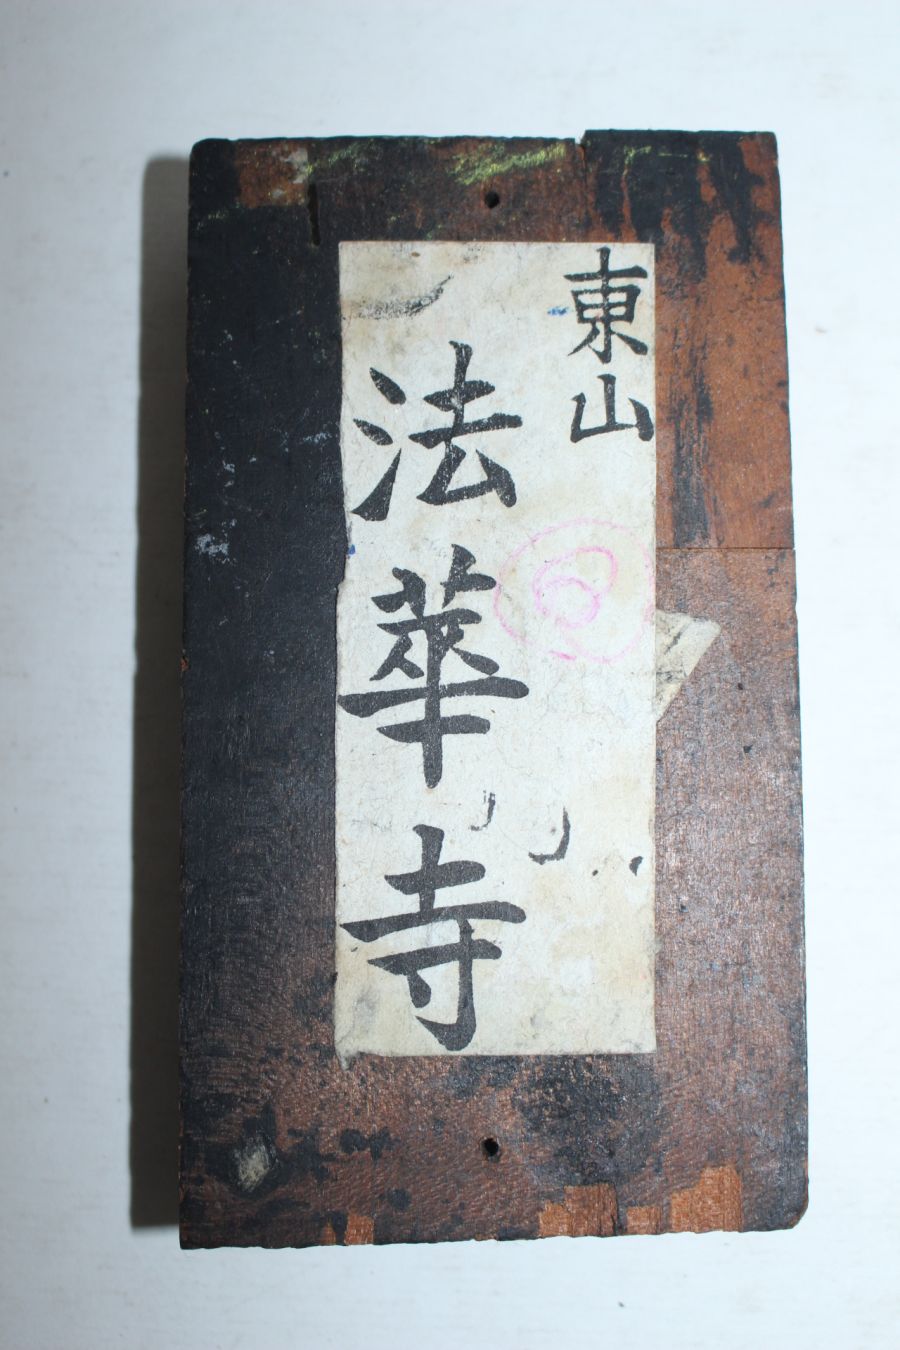 東山
法華寺